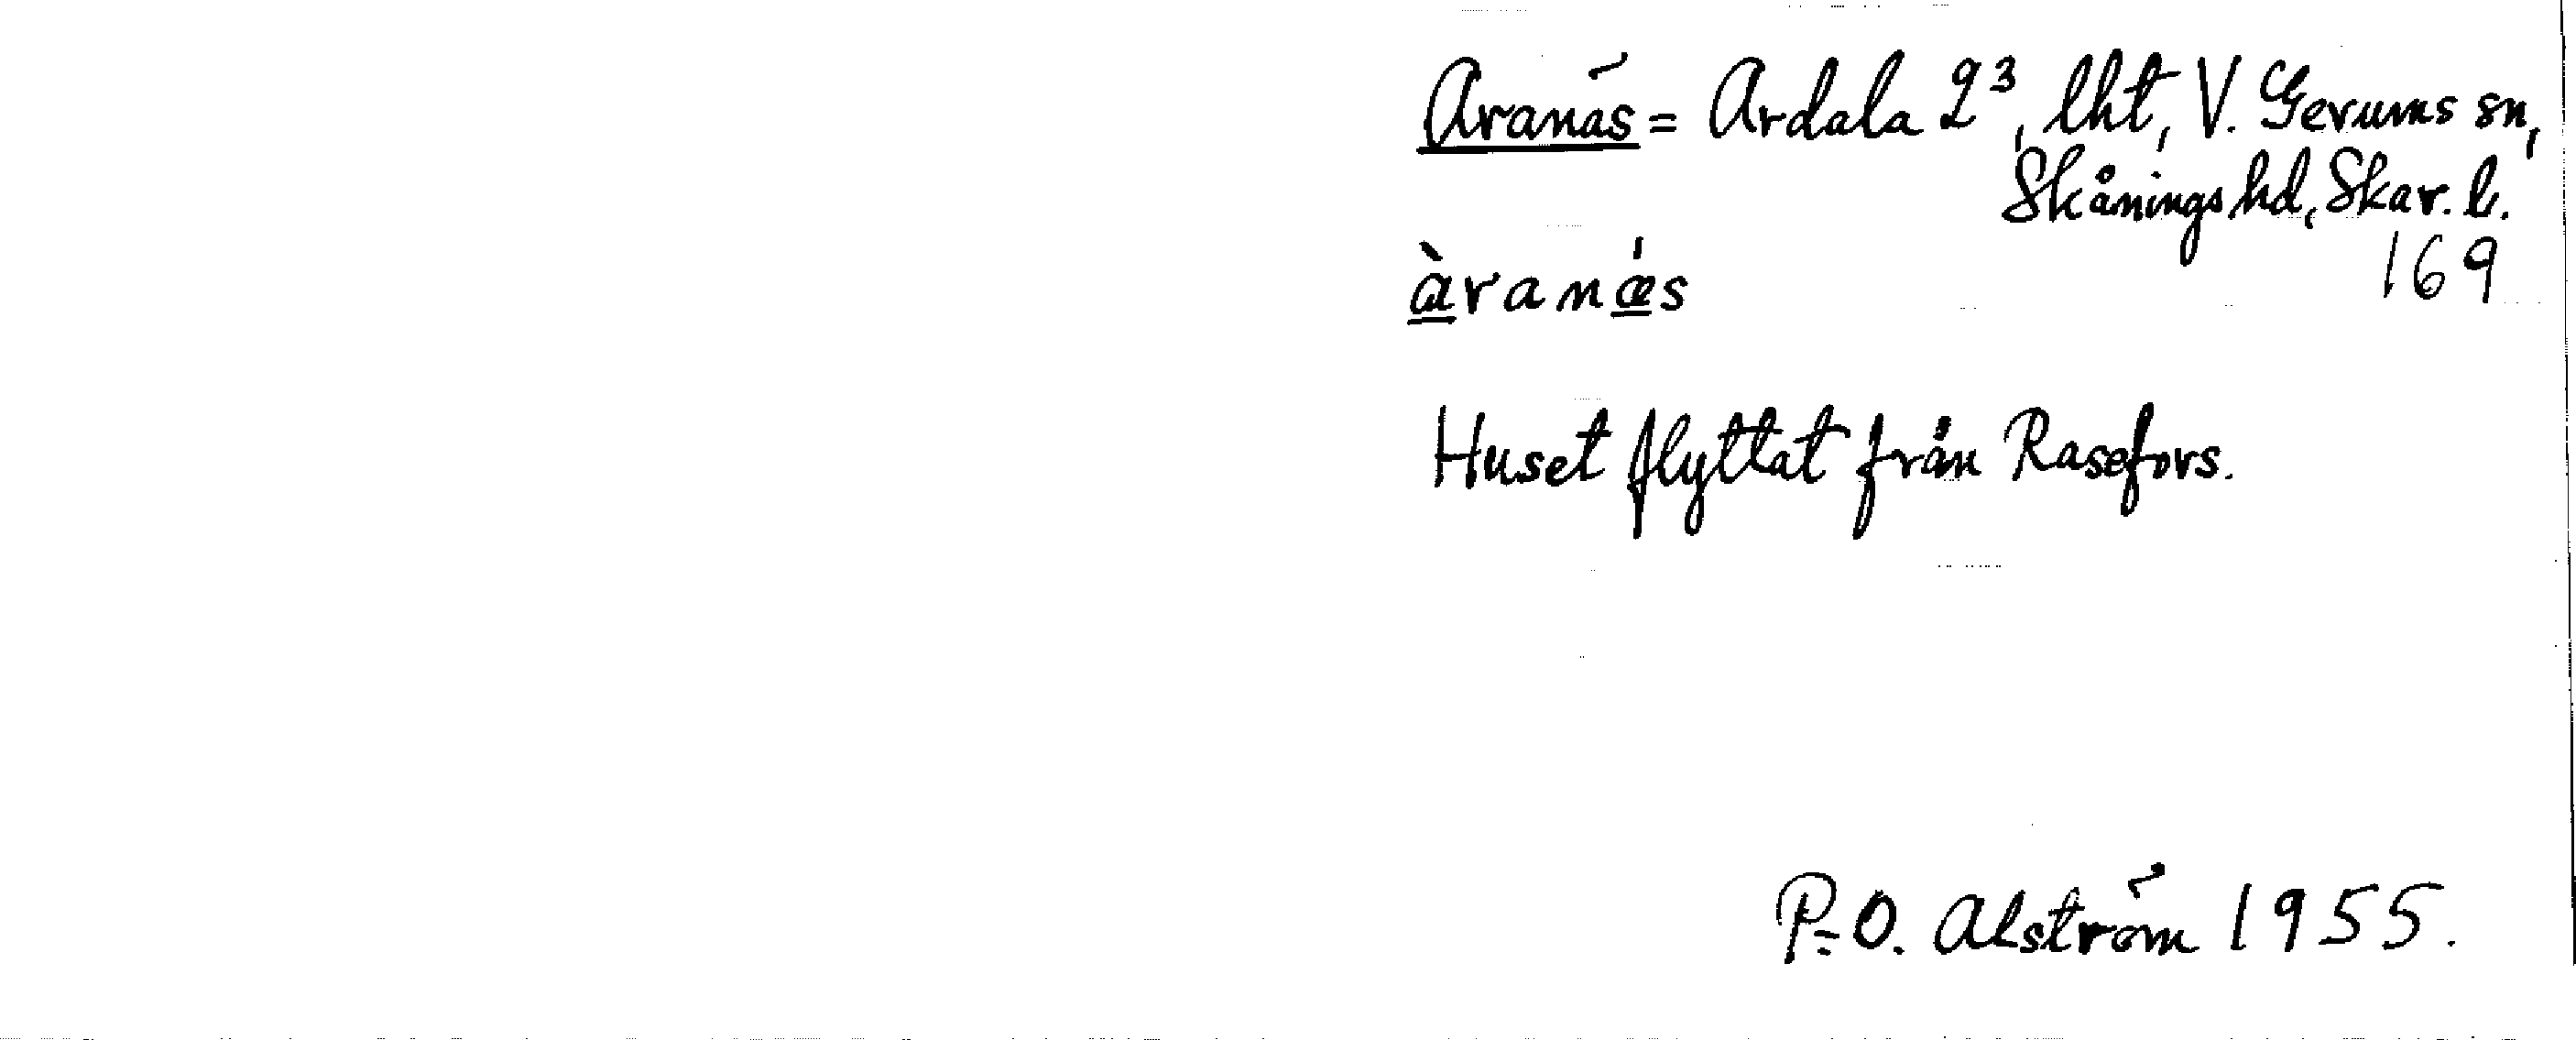 Aranäs = Ardala 2³, lht, V. Gerums sn,
Skånings hd, Skar. l.
169
àranǽs
Huset flyttat från Rasefors.
P.-O. Alström 1955.